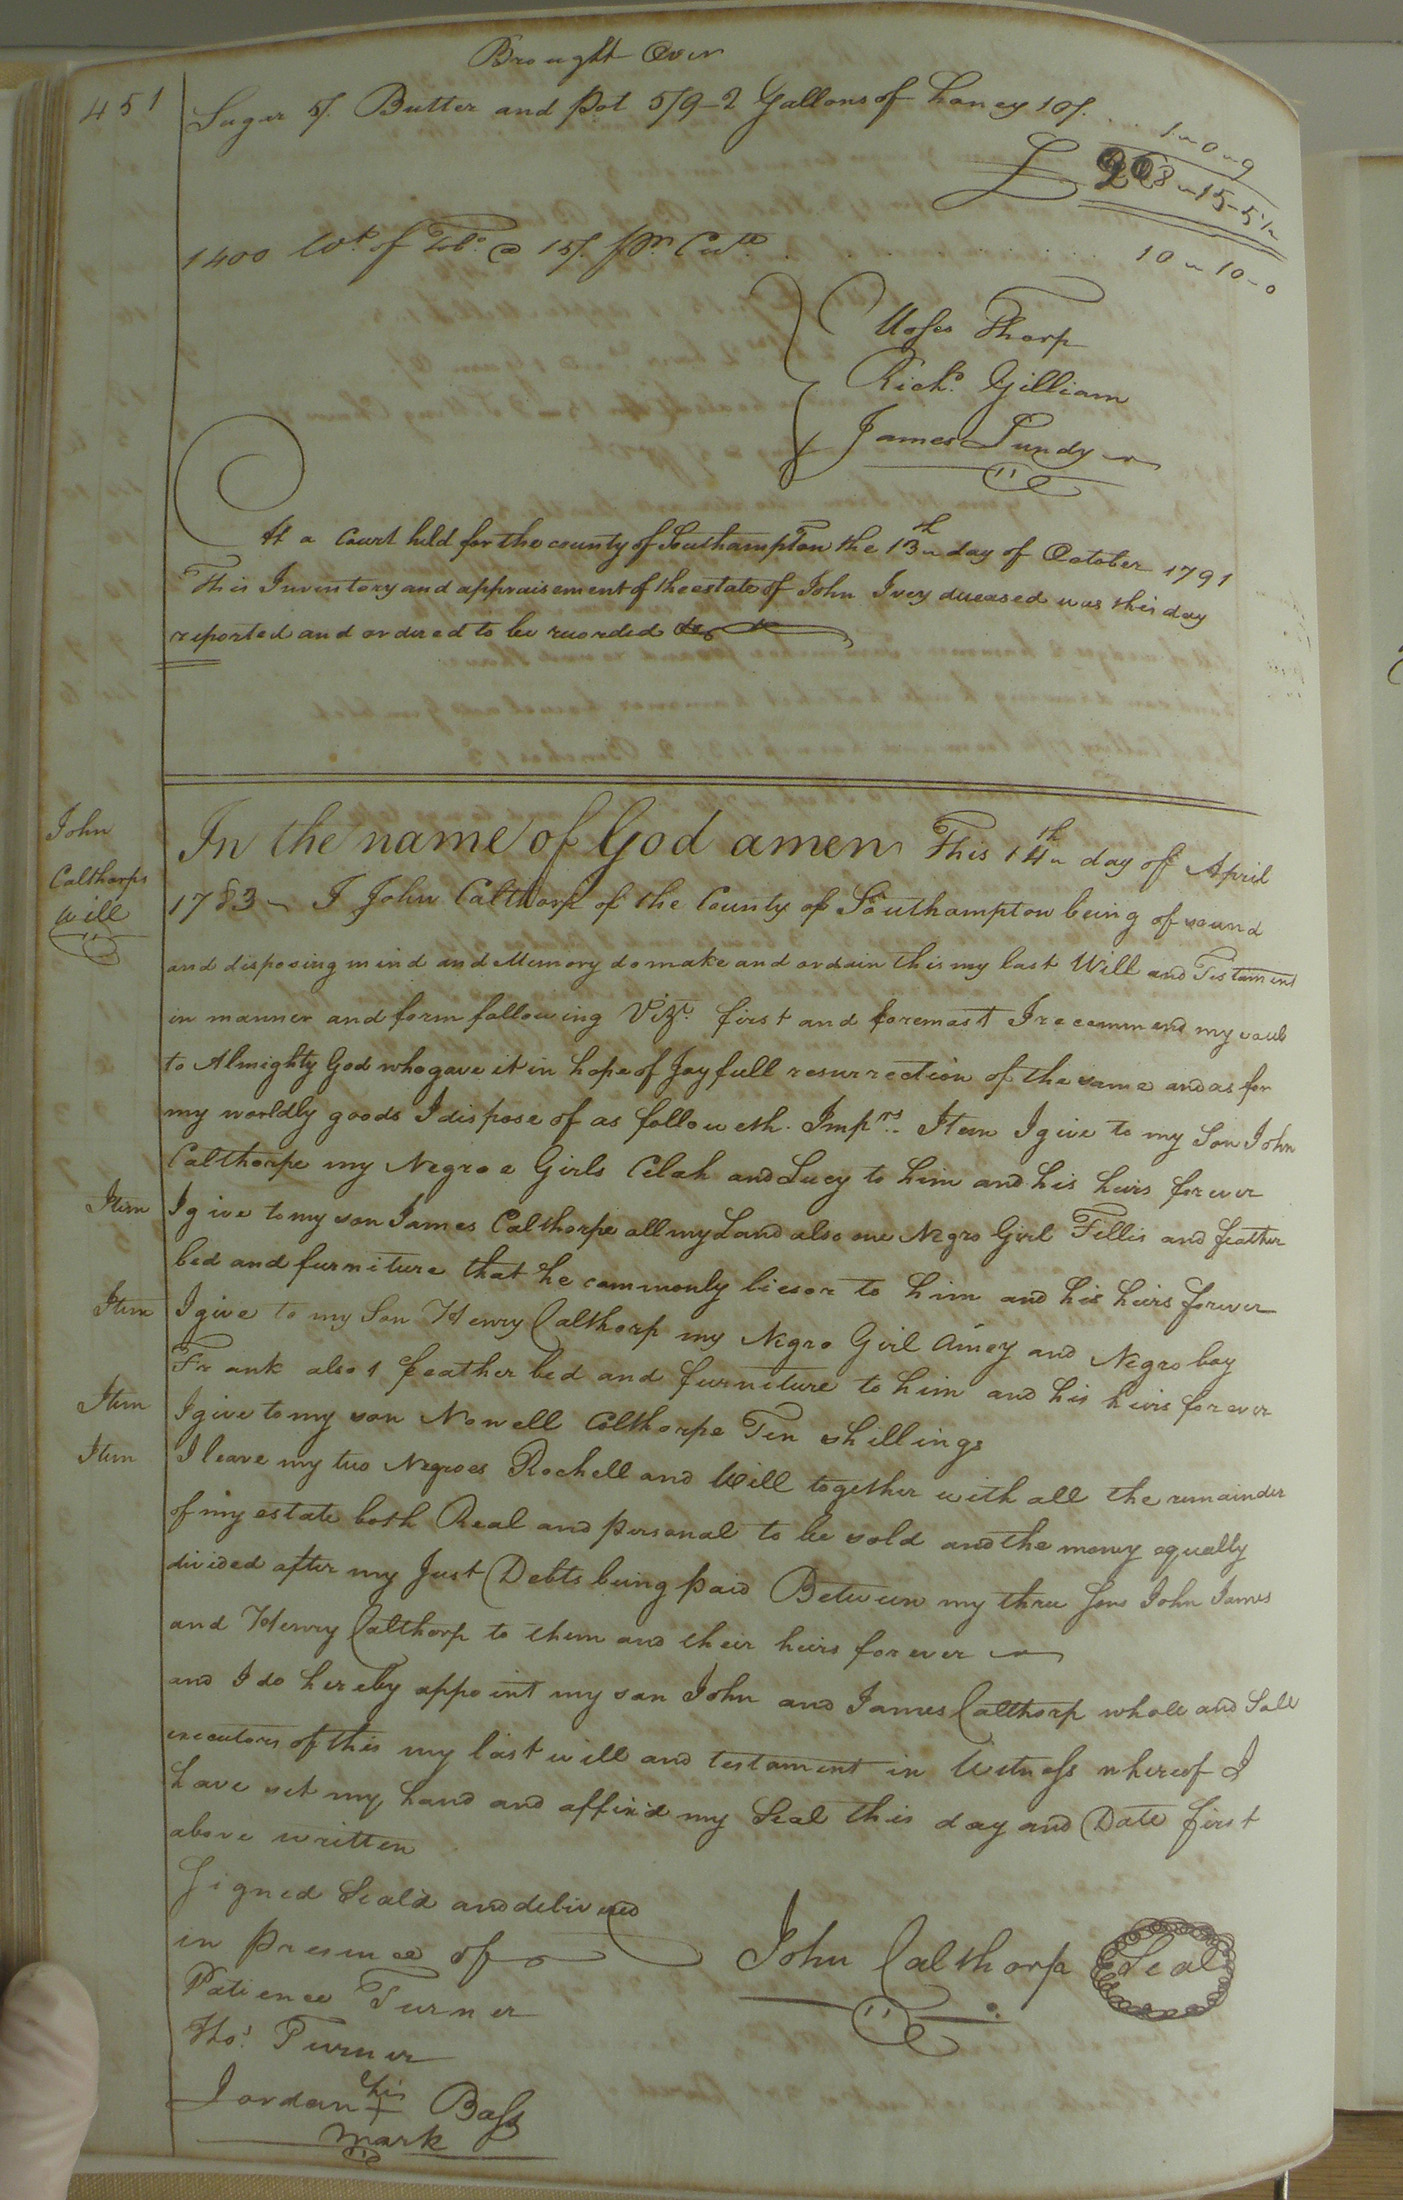 Brought Over
451
Sugar 5/. Butter and Pot 5/9 - 2 Gallons of honey 10/. ... 1 ~ 0 ~ 9
£ 8 ~ 15 - 5½
1400 Wt. of Tobo. @ 15/. pr. Cwt. . . . . . . 10 ~ 10 - 0
Moses Tharp
Richd. Gilliam
James Lundy
At a Court held for the county of Southampton the 13th day of October 1791
This Inventory and appraisement of the estate of John Ivey deceased was this day
reported and ordered to be recorded
John
Calthorps
Will
In the name of God amen This 14th day of April
1783 ~ I John Calthorp of the County of Southampton being of sound
and disposing mind and Memory do make and ordain this my last Will and Testament
in manner and form following Vizt. first and foremost I recommend my soul
to Almighty God who gave it in hope of Joyfull resurrection of the same and as for
my worldly goods I dispose of as followeth. Imprs. Item I give to my Son John
Calthorpe my Negroe Girls Celah and Lucy to him and his heirs forever
Item I give to my son James Calthorpe all my Land also one Negro Girl Fillis and feather
bed and furniture that he commonly lies or to him and his heirs forever
Item I give to my Son Henry Calthorp my Negro Girl Amey and Negro boy
Frank also 1 feather bed and furniture to him and his heirs forever
Item I give to my son Nowell Calthorpe Ten shillings
Item I leave my two Negroes Rochell and Will together with all the remainder
of my estate both Real and personal to be sold and the money equally
divided after my Just Debts being paid Between my three Sons John James
and Henry Calthorp to them and their heirs forever
and I do hereby appoint my son John and James Calthorp whole and Sole
executors of this my last will and testament in Witness whereof I
have set my hand and affix'd my Seal this day and Date first
above written
Signed Seal'd and delivered
in presence of
John Calthorp Seal
Patience Turner
Thos. Turner
Jordan his + Bass
mark